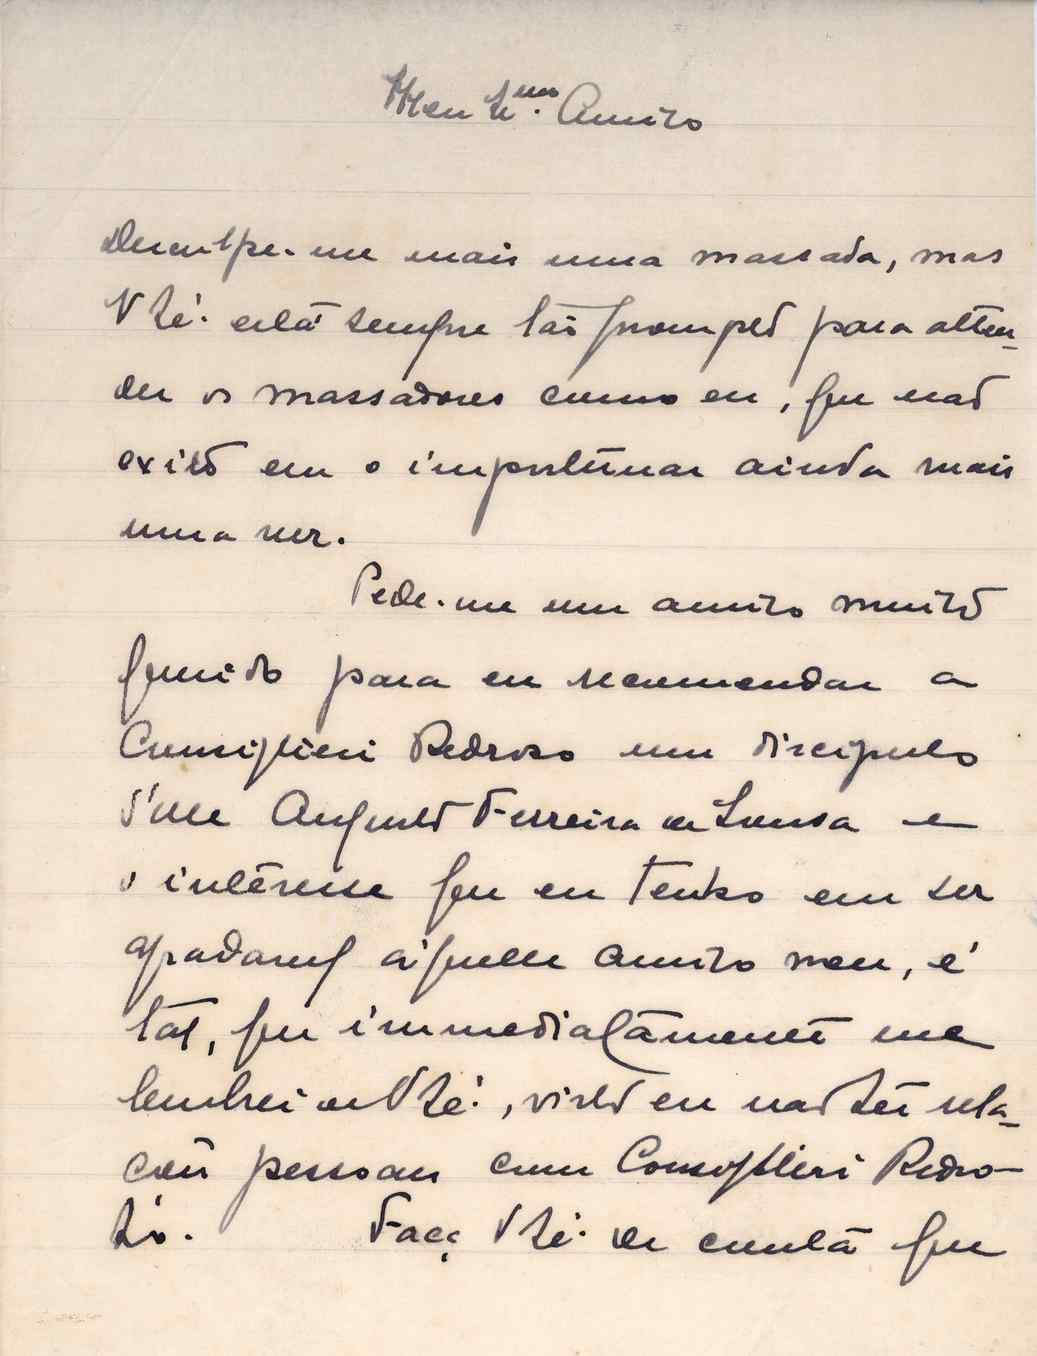 Meu Ex.mo Amigo
Desculpe-me mais uma massada, mas
V Exª. está sempre tão prompto para atten-
der os massadores como eu, que não
exito em o importunar ainda mais
uma vez.
Pede-me um amigo muito
querido para eu recommendar a
Consiglieri Pedroso um discipulo
d'elle Augusto Ferreira de Sousa e
o interesse que eu tenho em ser
agradavel áquelle amigo meu, é
tal, que immediatamente me
lembrei de V Exª., visto eu não ter rela-
ções pessoaes com Consiglieri Pedro-
so. Faça V Exª. de conta que